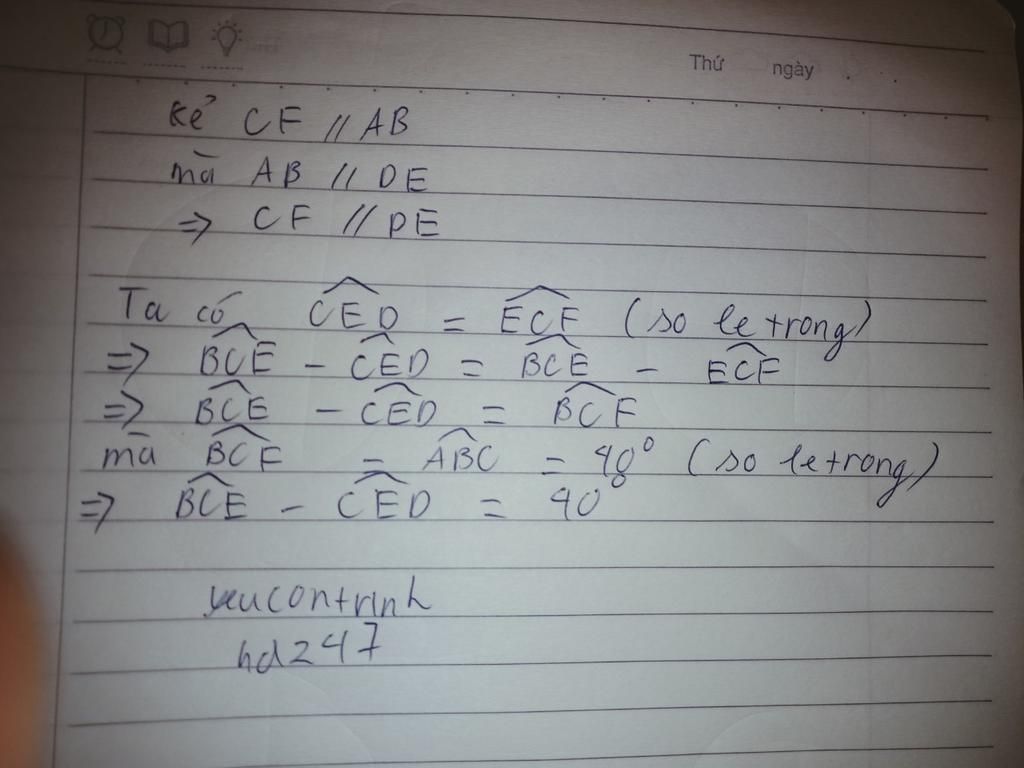 Thứ ngày
Kẻ CF // AB
mà AB // DE
=> CF // DE
Ta có $\widehat{CED}$ = $\widehat{ECF}$ (so le trong)
=> $\widehat{BCE}$ - $\widehat{CED}$ = $\widehat{BCE}$ - $\widehat{ECF}$
=> $\widehat{BCE}$ - $\widehat{CED}$ = $\widehat{BCF}$
mà $\widehat{BCF}$ = $\widehat{ABC}$ = 40° (so le trong)
=> $\widehat{BCE}$ - $\widehat{CED}$ = 40
yeucontrinh
hdz47